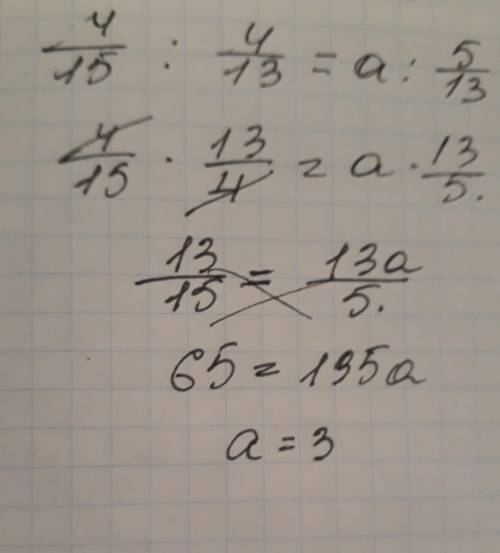 4/15 : 4/13 = a : 5/13
4/15 · 13/4 = a · 13/5.
13/15 = 13a/5.
65 = 195a
a = 3